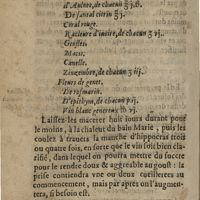 d'Aulnee, de chacun ℥j.ß.
De santal citrin ℥j.
Coral rouge.
Racleure d'iuoire, de chacun ʒ vj.
Girofles.
Macis.
Canelle.
Zinzembre, de chacun ʒ iij.
Fleurs de genet.
De rosmarin.
D'epithym, de chacun p.ij.
Vin blanc genereux ℔ vj.
Laissez-les macerer huit iours durant pour
le moins, à la chaleur du bain Marie, puis les
coulez à trauers la manche d'hippocras trois
ou quatre fois, en sorte que le vin soit bien cla-
rifié, dans lequel on pourra mettre du succre
pour le rendre doux & aggreable au goust: la
prise contiendra vne ou deux cueillerees au
commencement, mais par apres on l'augmen-
tera, si besoin est.